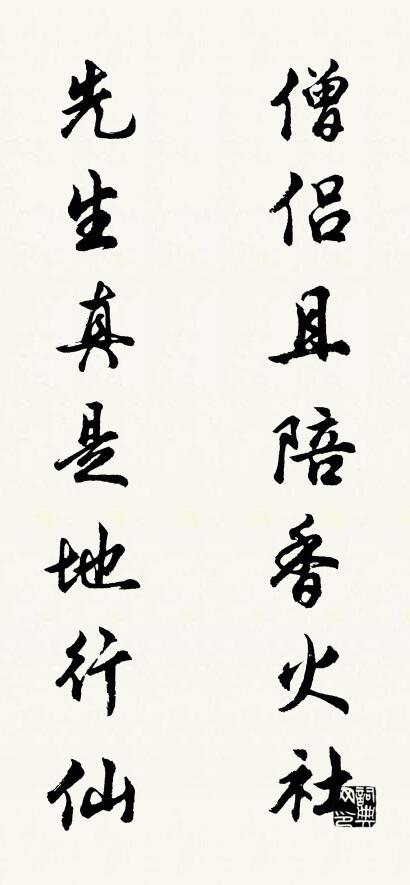 僧侣且陪香火社
先生真是地行仙
詞典网